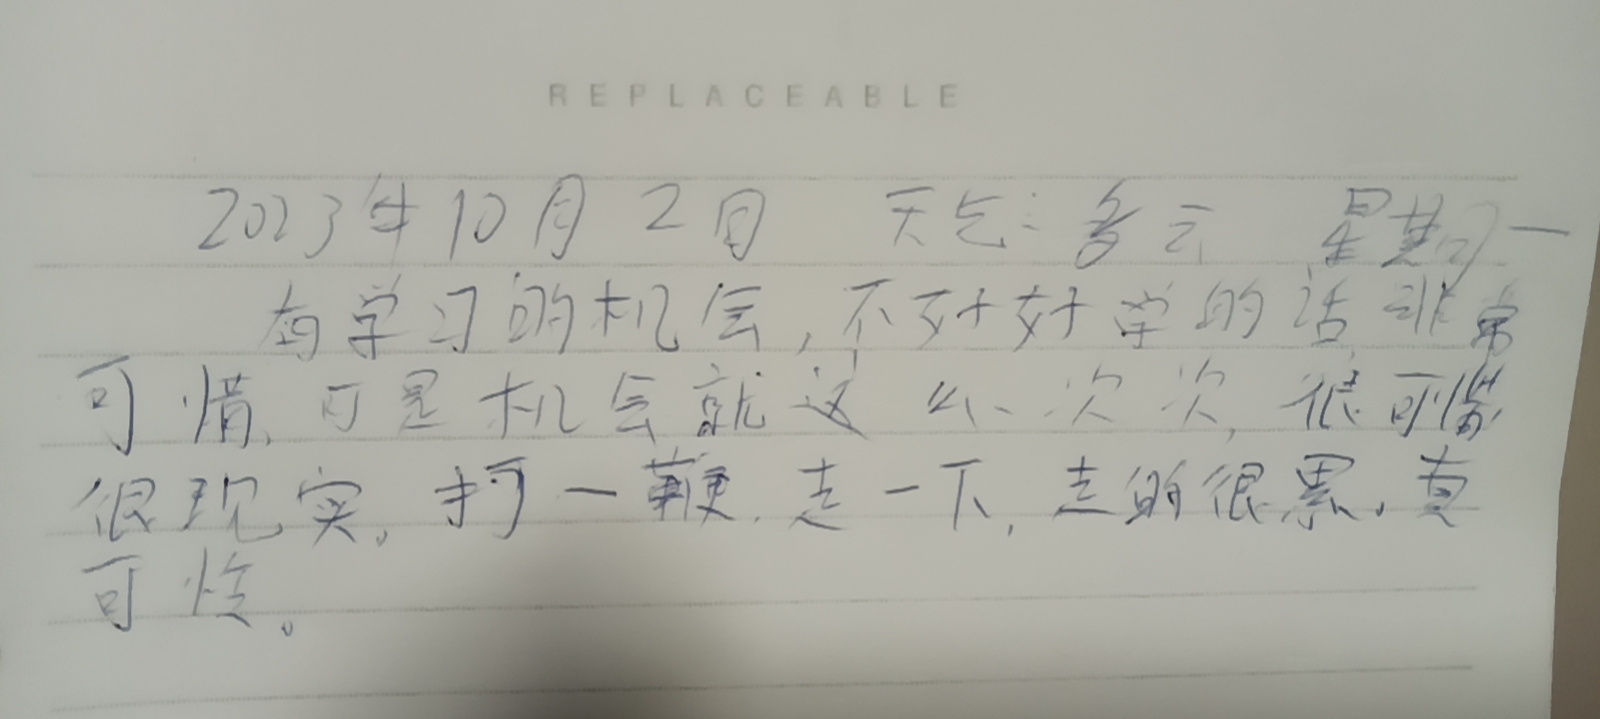 REPLACEABLE
2023年10月2日 天气:多云 星期一
有学习的机会,不好好学的话非常
可惜,可是机会就这么、次次,很可惜
很现实。打一鞭,走一下,走的很累。真
可怜。